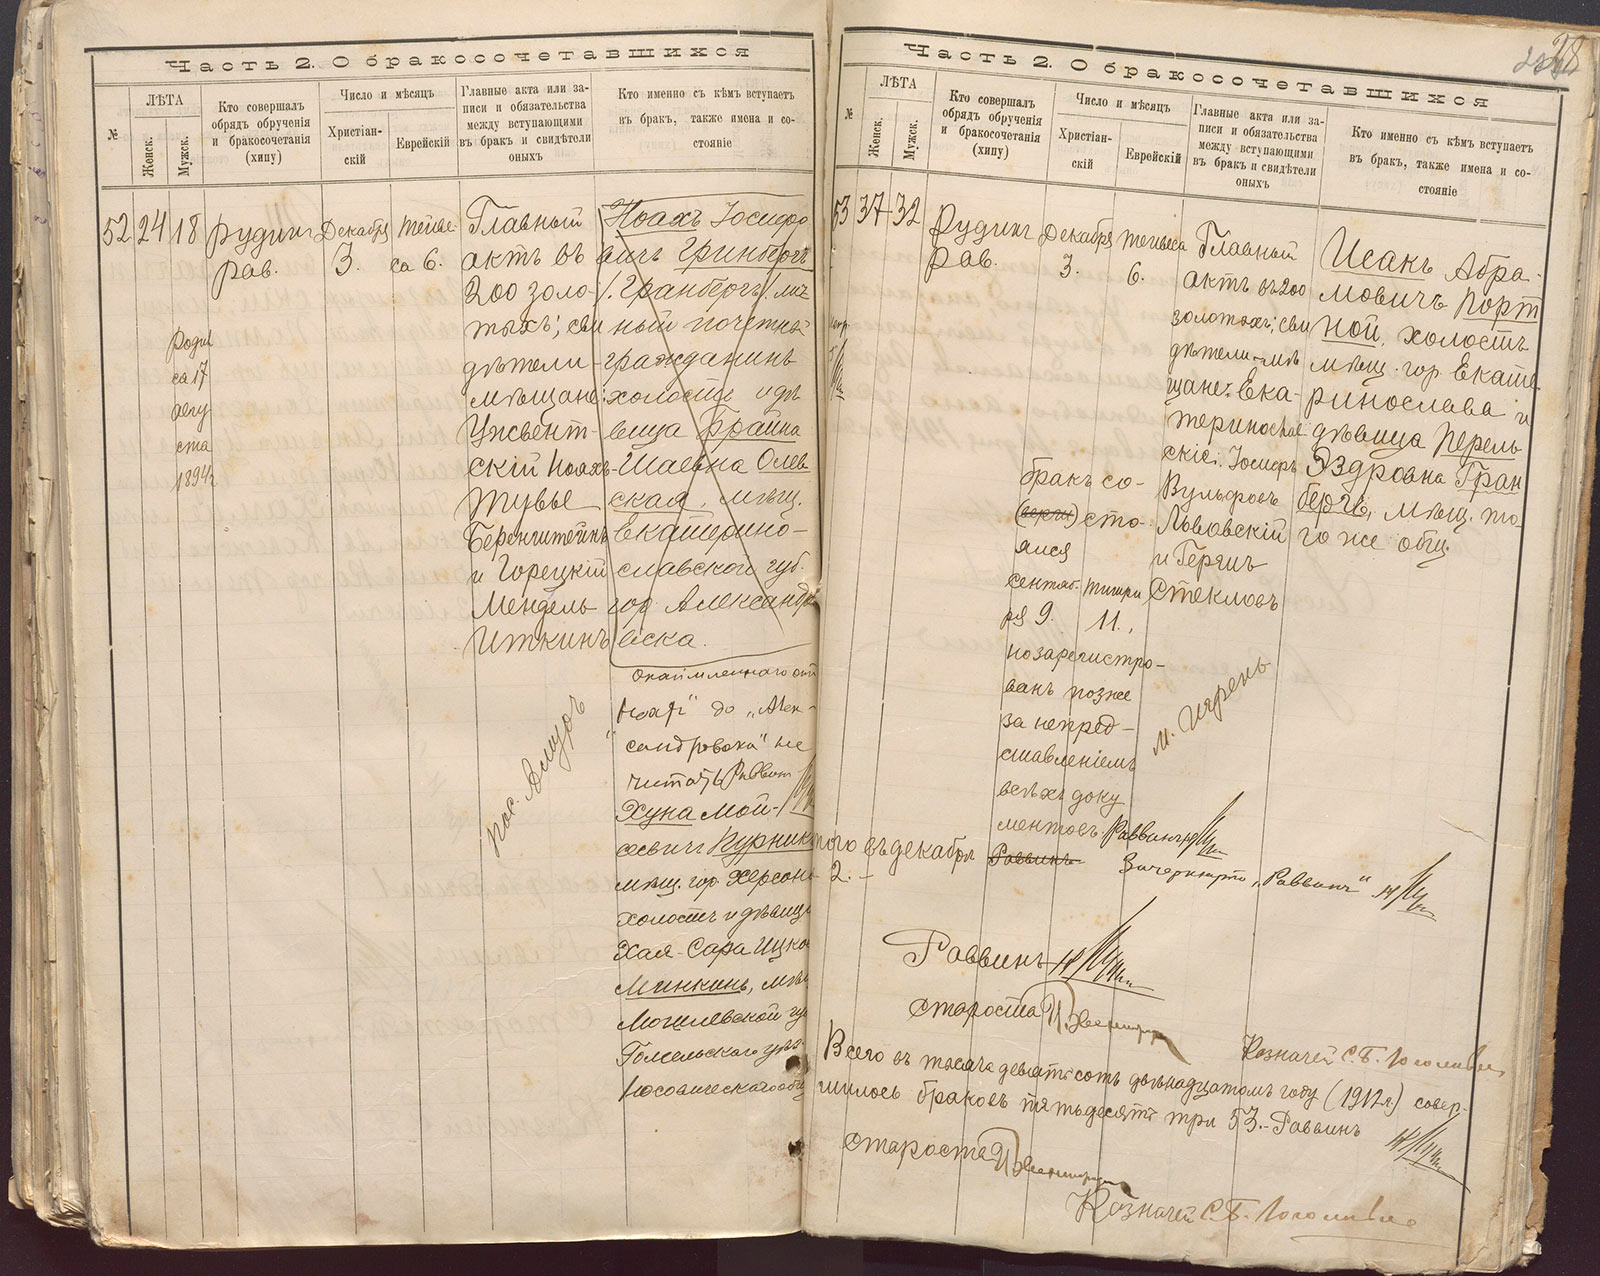 Часть 2. О бракосочетавшихся
№
ЛѢТА
Женск.
Мужск.
Кто совершалъ
обрядъ обрученія
и бракосочетанія
(хипу)
Число и мѣсяцъ
Христіан-
скій
Еврейскій
Главные акта или за-
писи и обязательства
между вступающими
въ бракъ и свидѣтели
оныхъ
Кто именно съ кѣмъ вступаетъ
въ бракъ, также имена и со-
стояніе
52
24
18
Родил
ся 17
авгу
ста
1894 г
Рудинъ
рав.
Декабря
3.
Тейве-
са 6.
Главный
актъ въ
200 золо-
тыхъ; сви
дѣтели-
мѣщане:
скій Ноахъ-
Тувье
Беренштейнъ
и Горецкій
Мендель
Иткинъ
Ноахъ Іосифо
вичъ Гринбергъ
(Гранбергъ) лич
ный почетный
гражданинъ
холостъ и дѣ
вица Брайна
Шаевна Олев
ская, мѣщ.
Екатерино-
славской губ.
гор. Александро
вска.
"Ноахъ" до "Алек-
сандровска" не
читать Раввинъ
Хуна Мой-
сѣвичъ Курник
мѣщ. гор. Херсона
холостъ и дѣвица
Хая-Сара Ицко
Минкинъ, мѣщ
Могилевской гу
Гомельскаго уѣз.
Носовическаго общ
пос. Амуръ
Часть 2. О бракосочетавшихся
28
№
ЛѢТА
Женск.
Мужск.
Кто совершалъ
обрядъ обрученія
и бракосочетанія
(хипу)
Число и мѣсяцъ
Христіан-
скій
Еврейскій
Главные акта или за-
писи и обязательства
между вступающими
въ бракъ и свидѣтели
оныхъ
Кто именно съ кѣмъ вступаетъ
въ бракъ, также имена и со-
стояніе
53
37
32
Рудинъ
рав.
Декабря
3.
Тейвеса
6.
бракъ со-
сто-
ялся
сентяб-
ря 9.
Тишри
11.,
но зарегистро-
ванъ позже
за непред-
ставленіемъ
всѣхъ доку
ментовъ. Раввинъ
Раввинъ
Зачеркнуто „Раввинъ"
Главный
актъ въ 200
золотыхъ; сви
дѣтели-мѣ
щане: Ека-
теринослав
скіе: Іосифъ
Вульфовъ
Львовскій
и Гершъ
Стекловъ
Исакъ Абра-
мовичъ Порт
ной, холостъ
мѣщ. гор. Екате-
ринослава и
дѣвица Перель
Эздровна Гран
бергъ, мѣщ. то
го же общ.
въ декабря
2.-
Раввинъ
Староста
Казначей С. Б.
Всего въ тысяча девятьсотъ двѣнадцатомъ году (1912 г.) совер-
шилось браковъ пятьдесятъ три 53.-Раввинъ
Староста
Казначей С. Б.